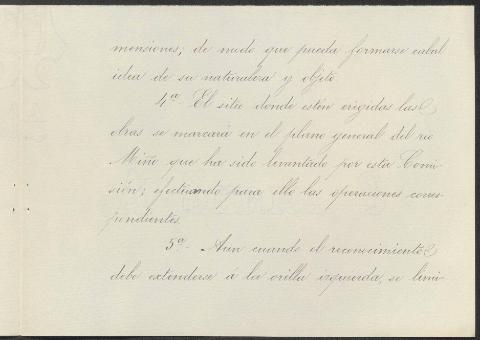 mensiones; de modo que pueda formarse cabal
idea de su naturaleza y objeto
4ª- El sitio donde estén erigidas las
obras se marcará en el plano general del rio
Miño que ha sido levantado por esta Comi-
sión; efectuando para ello las operaciones corres-
pondientes.
5ª- Aun cuando el reconocimiento
debe extenderse á la orilla izquierda, se limi-